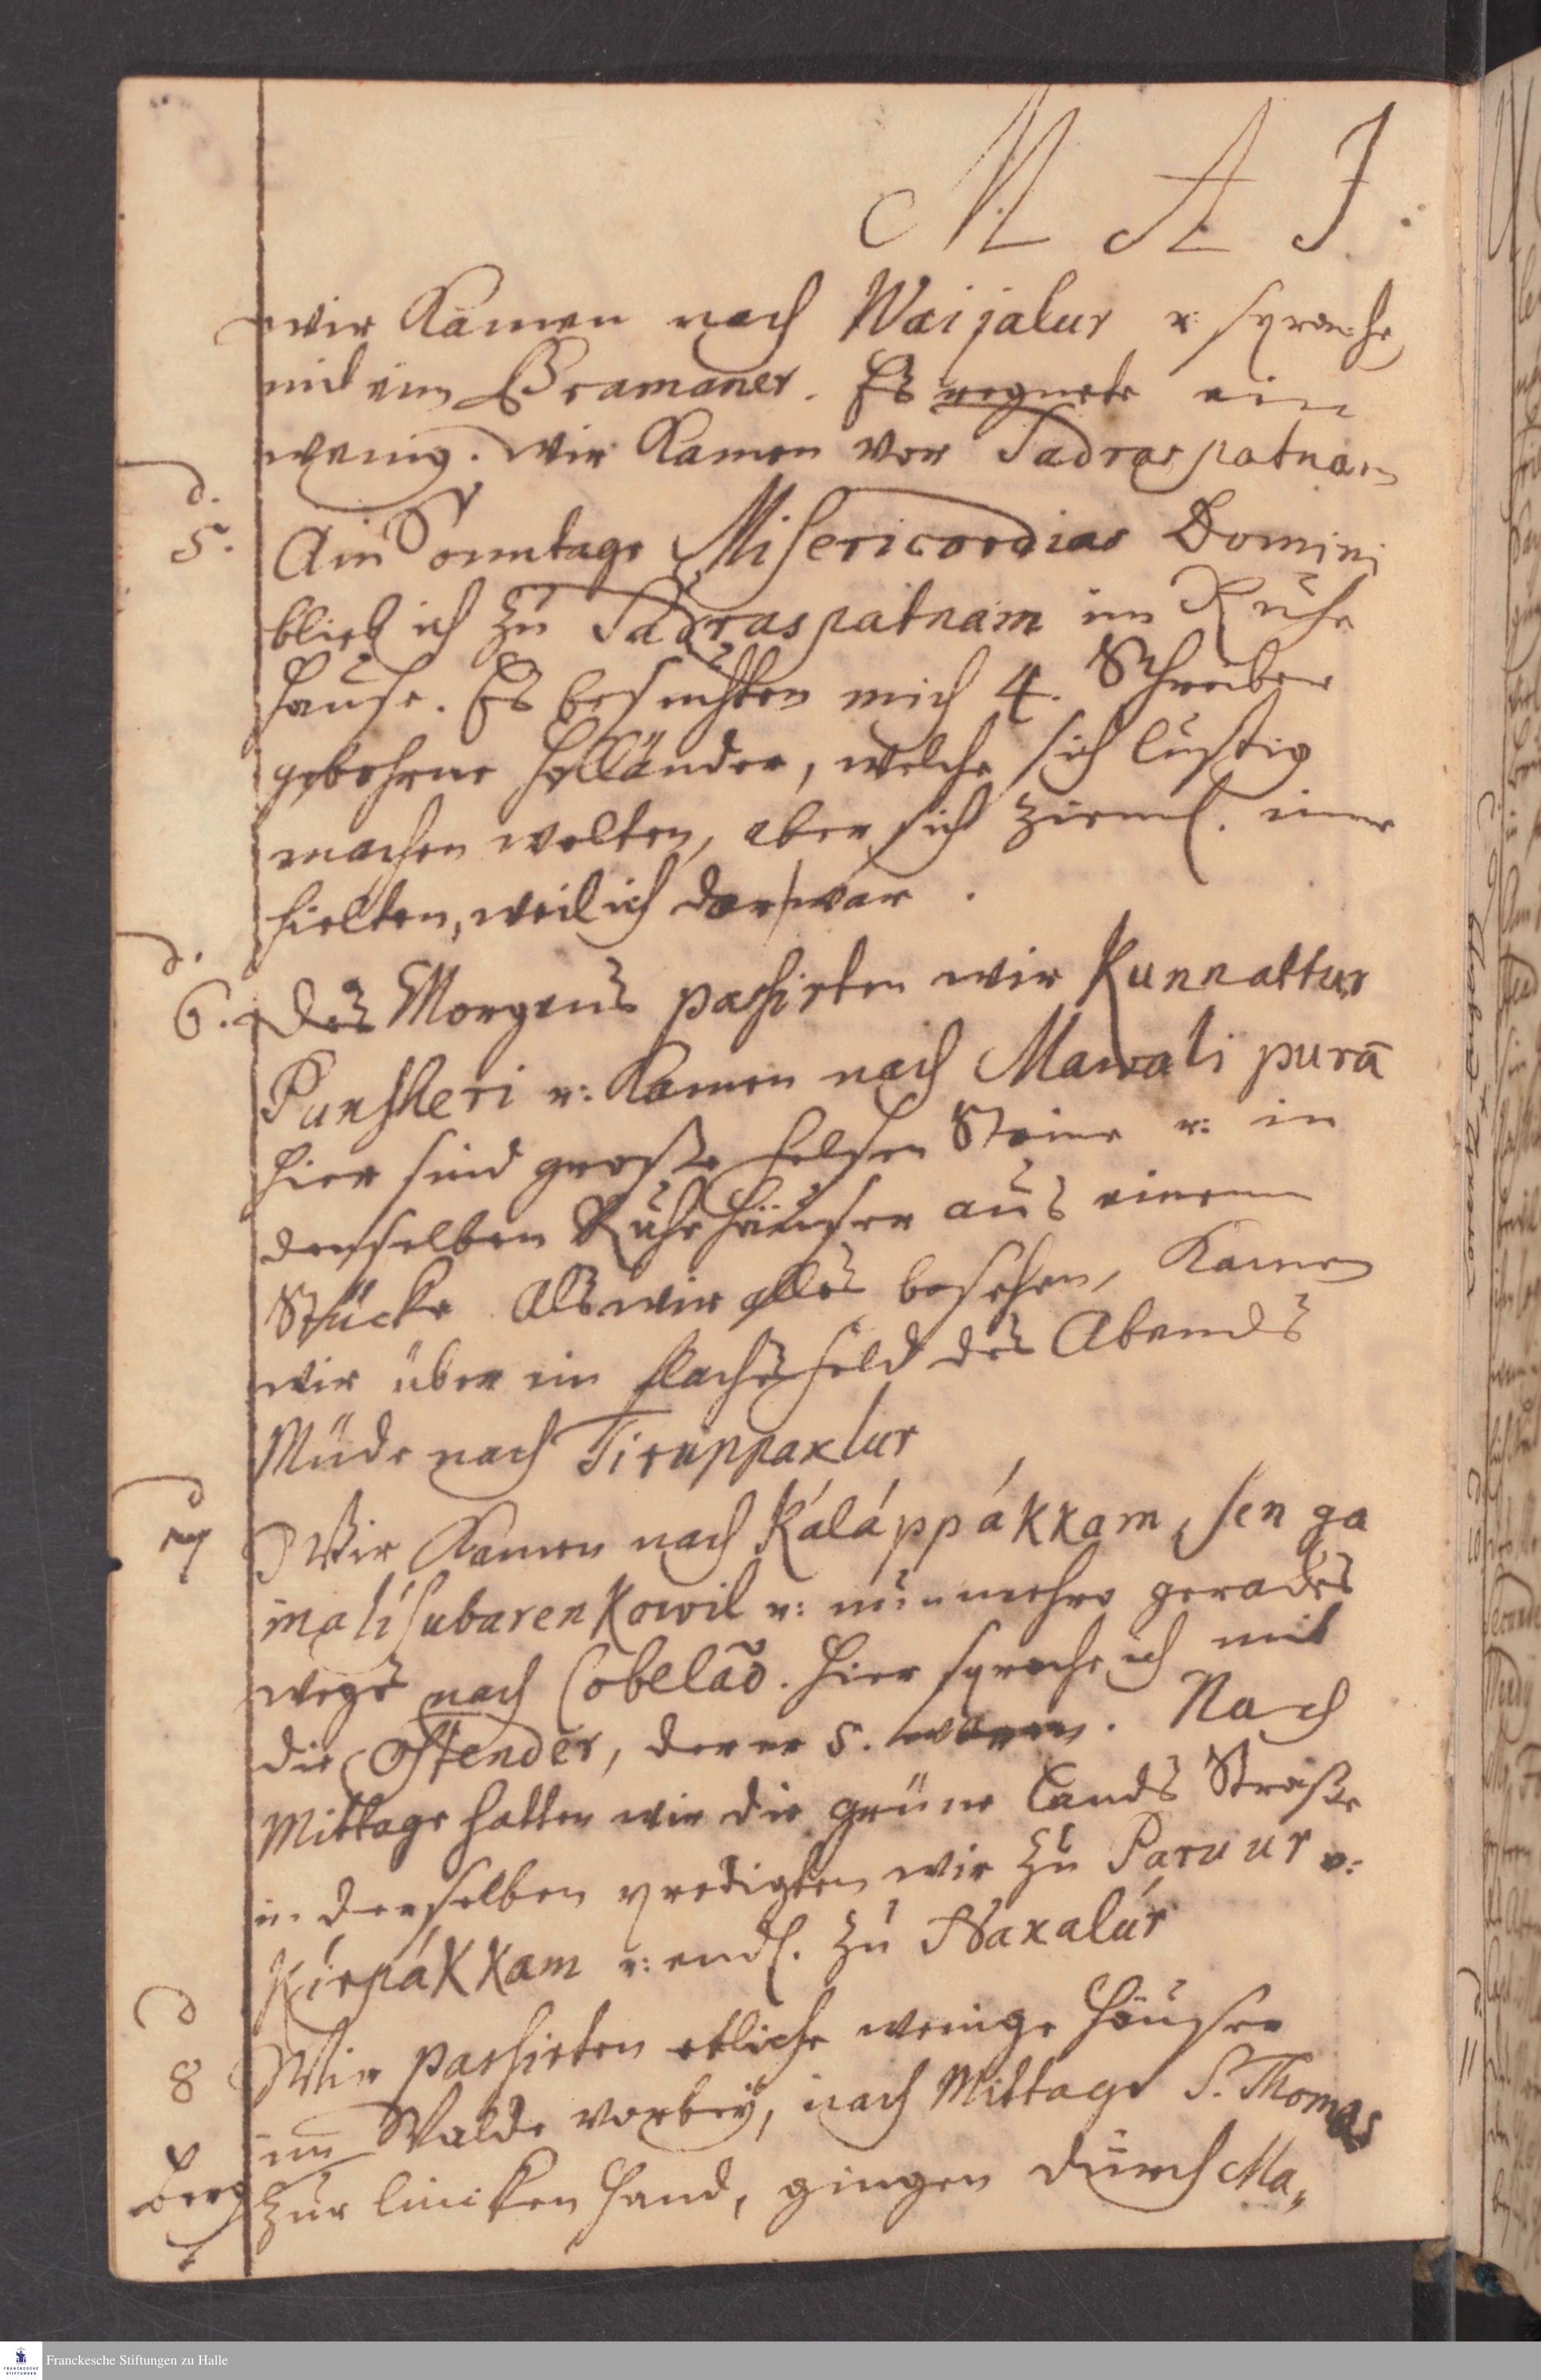 M A J.
wir kamen nach Waijalur u: sprache
mit eim Bramaner. Es regnete ein
wenig. Wir kamen vor Sadraspatnam
d.
5. Am Sonntage Misericordias Domini
blieb ich zu Sadraspatnam im Ruhe
Hause. Es besuchten mich 4. Schreiber
gebohrne Holländer, welche sich lustig
machen wolten, aber sich zieml. inne
hielten, weil ich dar war.
d.
6. Des Morgens passirten wir Kunnattur
Punsheri u: kamen nach Mawali purā
hier sind große Felsen Steine u: in
denselben Ruhe Häuser aus einem
Stücke. Als wir alles besehen, kamen
wir über ein flaches Feld des Abends
Müde nach Tiruppaxlur
d
7 Wir kamen nach Káláppákkam, Senga
malisubarenkowil u: nunmehro gerades
wegs nach Cobelão. Hier sprache ich mit
die Ostender, derer 5. waren. Nach
Mittage hatten wir die grüne Lands Straße
in derselben predigten wir zu Paruur u:
Kirpákkam u: endl. zu Naxalúr
d
8 Wir passirten etliche wenige Häuser
im Walde vorbey, nach Mittage S. Thomas
berg zur lincken Hand, gingen durch Ma„
Franckesche Stiftungen zu Halle